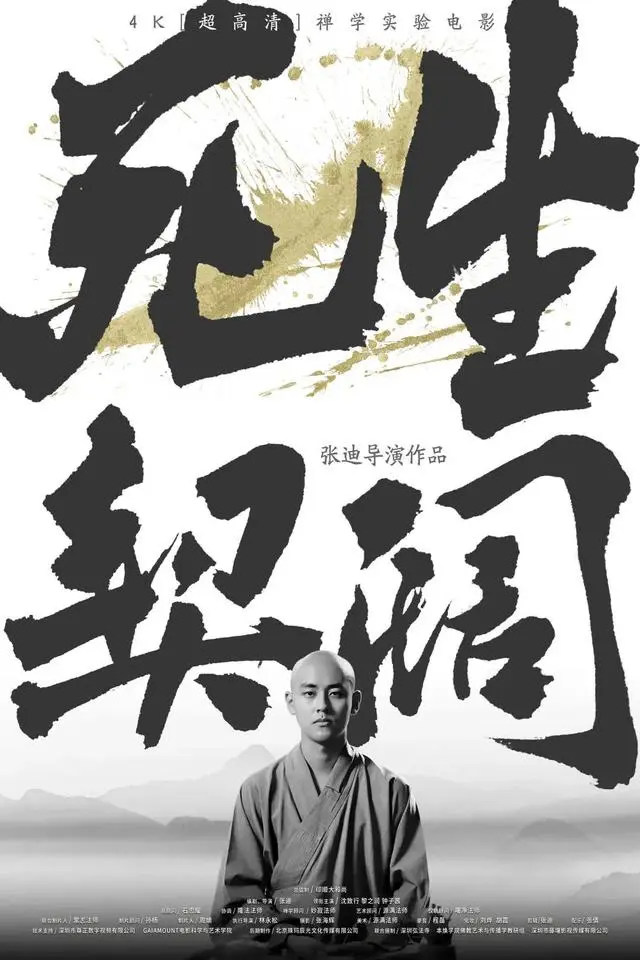 4K[超高清]禅学实验电影
死生
契阔
张迪导演作品
总监制/印顺大和尚
编剧、导演/张迪 领衔主演/沈敦行 黎之润 钟子茜
总顾问/石忠耀 协调/隆法法师 禅学顾问/妙寂法师 艺术顾问/源满法师
联合制片人/常志法师 制片顾问/孙杨 制片人/周娣 执行导演/林永松 摄影/张海辉 美术/源满法师 录音/程磊 化妆/刘烨 胡霞 剪辑/张迪 配乐/张倩
技术支持/深圳市尊正数字视频有限公司 GAIAMOUNT电影科学与艺术学院 后期制作/北京陈玛辰光文化传媒有限公司 联合摄制/深圳弘法寺 本焕学院佛教艺术与传播学教研组 深圳市藤壤影视传媒有限公司